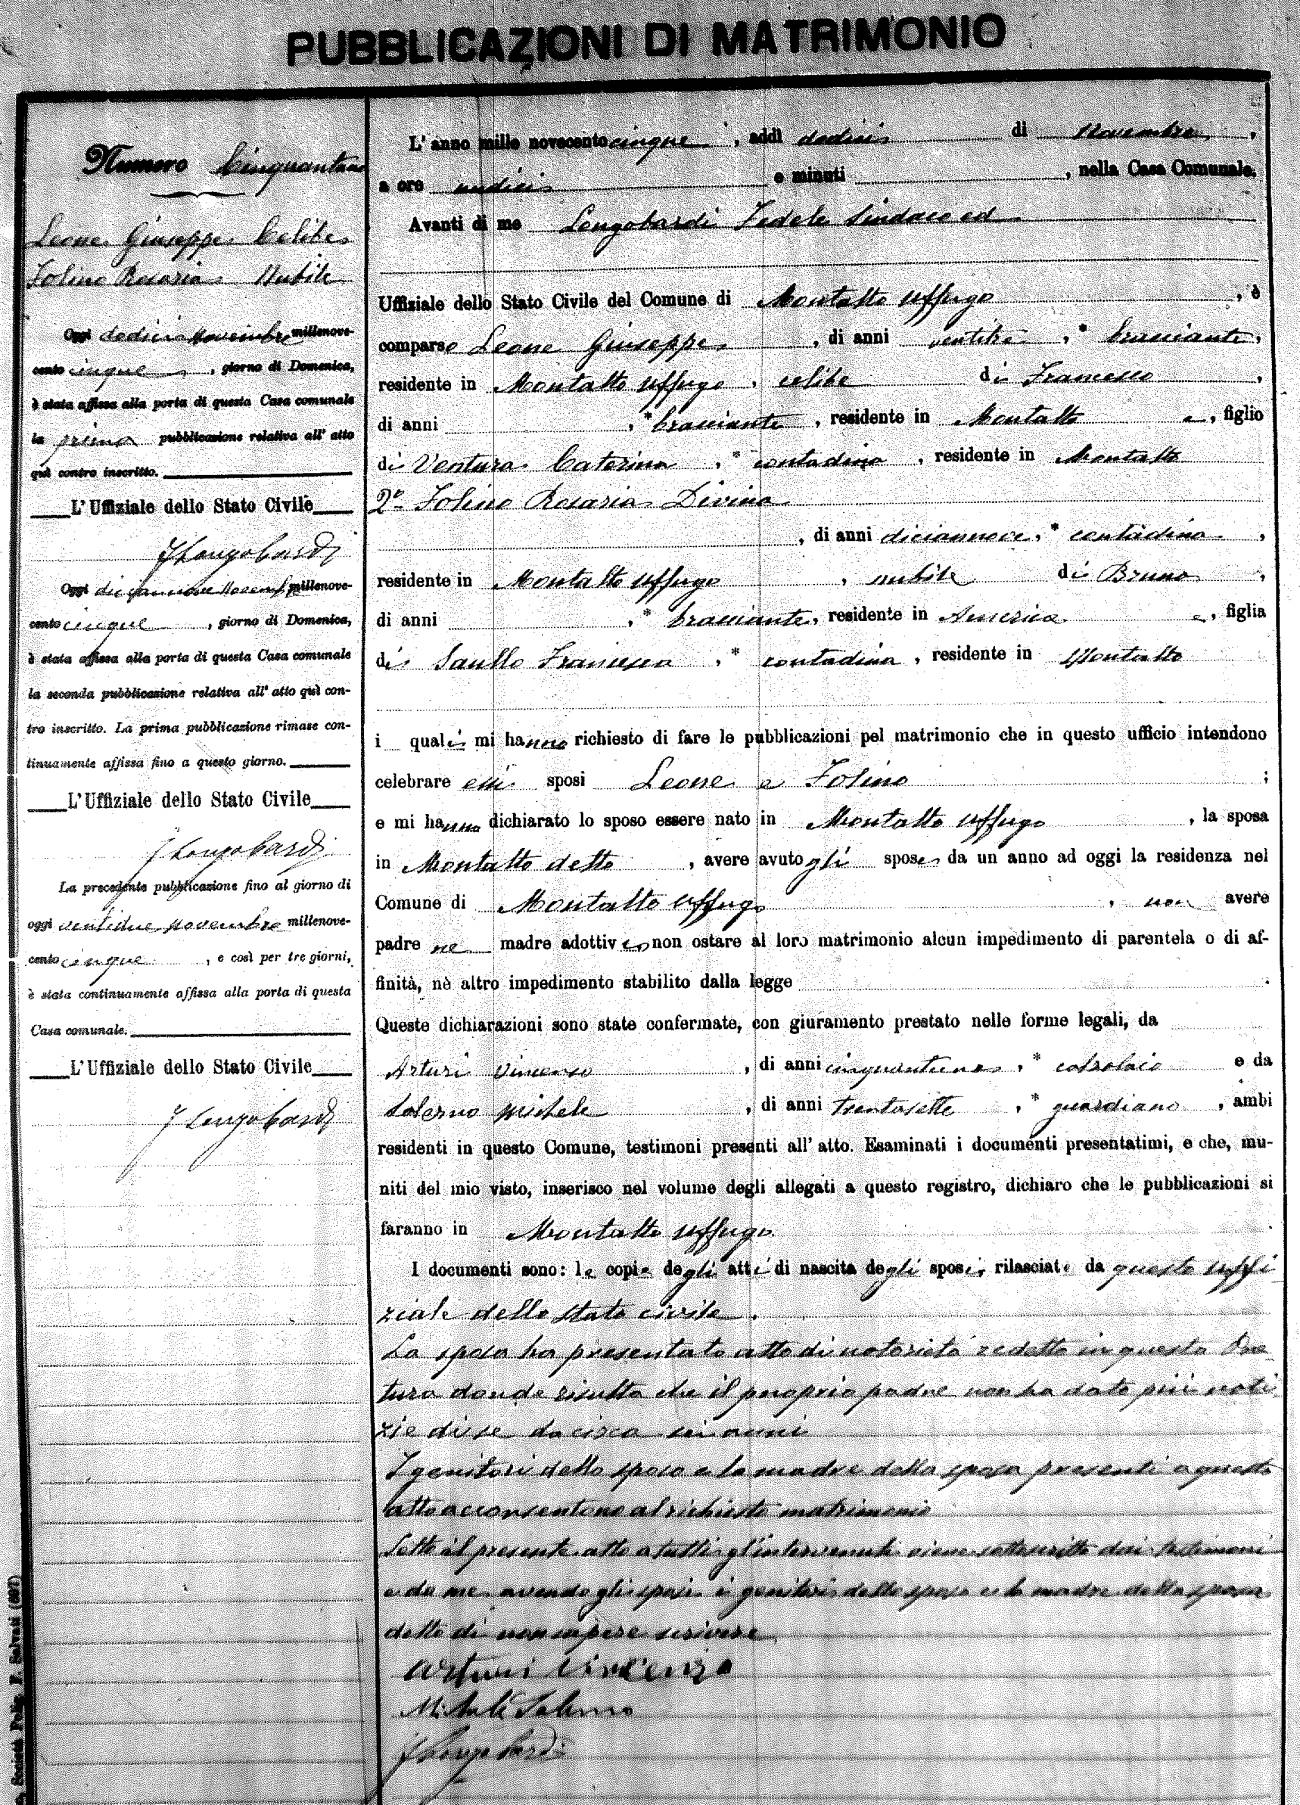 PUBBLICAZIONI DI MATRIMONIO
Numero Cinquantuno
Leone Giuseppe Celibe
Folino Rosaria Nubile
Oggi dodici Novembre millenove-
cento cinque, giorno di Domenica,
è stata affissa alla porta di questa Casa comunale
la prima pubblicazione relativa all' atto
quì contro inscritto.
L'Uffiziale dello Stato Civile
F Longobardi
Oggi diciannove Novembre millenove-
cento cinque, giorno di Domenica,
è stata affissa alla porta di questa Casa comunale
la seconda pubblicazione relativa all' atto quì con-
tro inscritto. La prima pubblicazione rimase con-
tinuamente affissa fino a questo giorno.
L'Uffiziale dello Stato Civile
F Longobardi
La precedente pubblicazione fino al giorno di
oggi ventidue Novembre millenove-
cento cinque, e così per tre giorni,
è stata continuamente affissa alla porta di questa
Casa comunale.
L'Uffiziale dello Stato Civile
F Longobardi
L' anno mille novecento cinque, addì dodici di Novembre,
a ore undici e minuti , nella Casa Comunale.
Avanti di me Longobardi Fedele Sindaco ed
Uffiziale dello Stato Civile del Comune di Montalto Uffugo, è
comparso Leone Giuseppe, di anni ventitre, * bracciante,
residente in Montalto Uffugo, celibe di Francesco,
di anni , * bracciante, residente in Montalto e, figlio
di Ventura Caterina, * contadina, residente in Montalto
2º Folino Rosaria Divina
, di anni diciannove, * contadina,
residente in Montalto Uffugo, nubile di Bruno,
di anni , * bracciante, residente in America e, figlia
di Saullo Francesca, * contadina, residente in Montalto
i quali mi hanno richiesto di fare le pubblicazioni pel matrimonio che in questo ufficio intendono
celebrare essi sposi Leone e Folino ;
e mi hanno dichiarato lo sposo essere nato in Montalto Uffugo, la sposa
in Montalto detto, avere avuto gli sposi da un anno ad oggi la residenza nel
Comune di Montalto Uffugo, non avere
padre ne madre adottivi, non ostare al loro matrimonio alcun impedimento di parentela o di af-
finità, nè altro impedimento stabilito dalla legge .
Queste dichiarazioni sono state confermate, con giuramento prestato nelle forme legali, da
Arturi Vincenzo, di anni cinquantuno, * calzolaio e da
Salerno Michele, di anni trentasette, * guardiano, ambi
residenti in questo Comune, testimoni presenti all' atto. Esaminati i documenti presentatimi, e che, mu-
niti del mio visto, inserisco nel volume degli allegati a questo registro, dichiaro che le pubblicazioni si
faranno in Montalto Uffugo.
I documenti sono: le copie degli atti di nascita degli sposi, rilasciate da questo uffi
ziale dello stato civile.
La sposa ha presentato atto di notorietà redatto in questa Pre-
tura donde risulta che il proprio padre non ha dato più noti
zie di se da circa sei anni
I genitori dello sposo e la madre della sposa presenti a questo
atto acconsentono al richiesto matrimonio
Letto il presente atto a tutti gl'intervenuti viene sottoscritto dai testimoni
e da me avendo gli sposi i genitori dello sposo e la madre della sposa
detto di non sapere scrivere
Arturi Vincenzo
Michele Salerno
F Longobardi
Società Polig. F. Salvati (807)